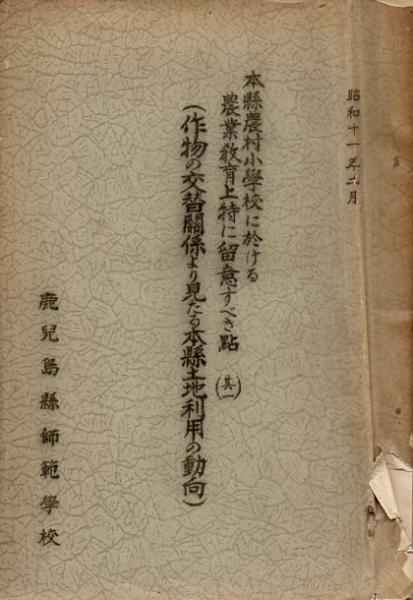 昭和十一年二月
本縣農村小學校に於ける
農業敎育上特に留意すべき點
(其一)
(作物の交替關係より見たる本縣土地利用の動向)
鹿兒島縣師範學校